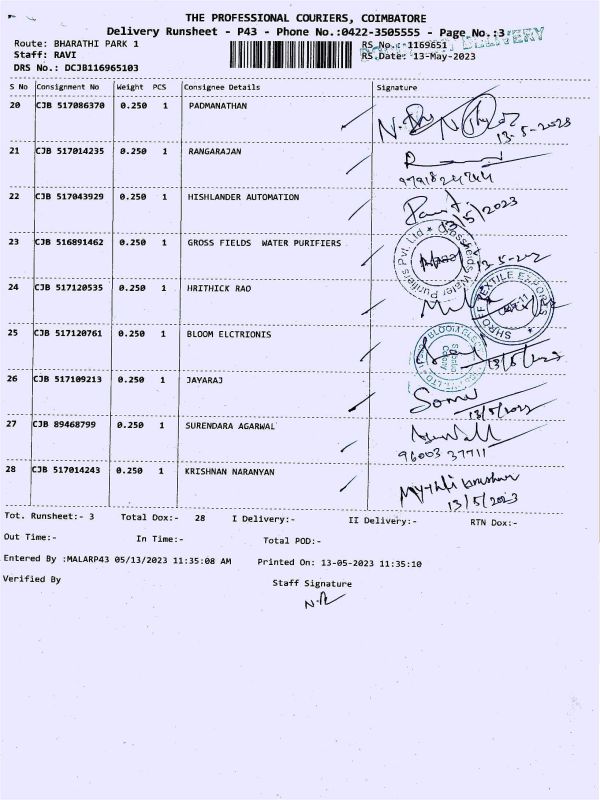 THE PROFESSIONAL COURIERS, COIMBATORE
Delivery Runsheet - P43 - Phone No.:0422-3505555 - Page No.:3
DELIVERY
Route: BHARATHI PARK 1
RS No.:-1169651
Staff: RAVI
RS Date: 13-May-2023
DRS No.: DCJB116965103
S No Consignment No Weight PCS Consignee Details Signature
20 CJB 517086370 0.250 1 PADMANATHAN
13-5-2023
21 CJB 517014235 0.250 1 RANGARAJAN
22 CJB 517043929 0.250 1 HISHLANDER AUTOMATION
13/5/2023
23 CJB 516891462 0.250 1 GROSS FIELDS WATER PURIFIERS
Grossfields Water Purifiers Pvt. Ltd
24 CJB 517120535 0.250 1 HRITHICK RAO
SHROFF TEXTILE EXPORTS
25 CJB 517120761 0.250 1 BLOOM ELCTRIONIS
13/5/2023
26 CJB 517109213 0.250 1 JAYARAJ
Soma
13/5/2023
27 CJB 89468799 0.250 1 SURENDARA AGARWAL
96003 37711
28 CJB 517014243 0.250 1 KRISHNAN NARANYAN
13/5/2023
Tot. Runsheet:- 3 Total Dox:- 28 I Delivery:- II Delivery:- RTN Dox:-
Out Time:- In Time:- Total POD:-
Entered By :MALARP43 05/13/2023 11:35:08 AM Printed On: 13-05-2023 11:35:10
Verified By Staff Signature